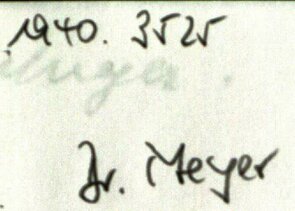 1940. 3525
Dr. Meyer